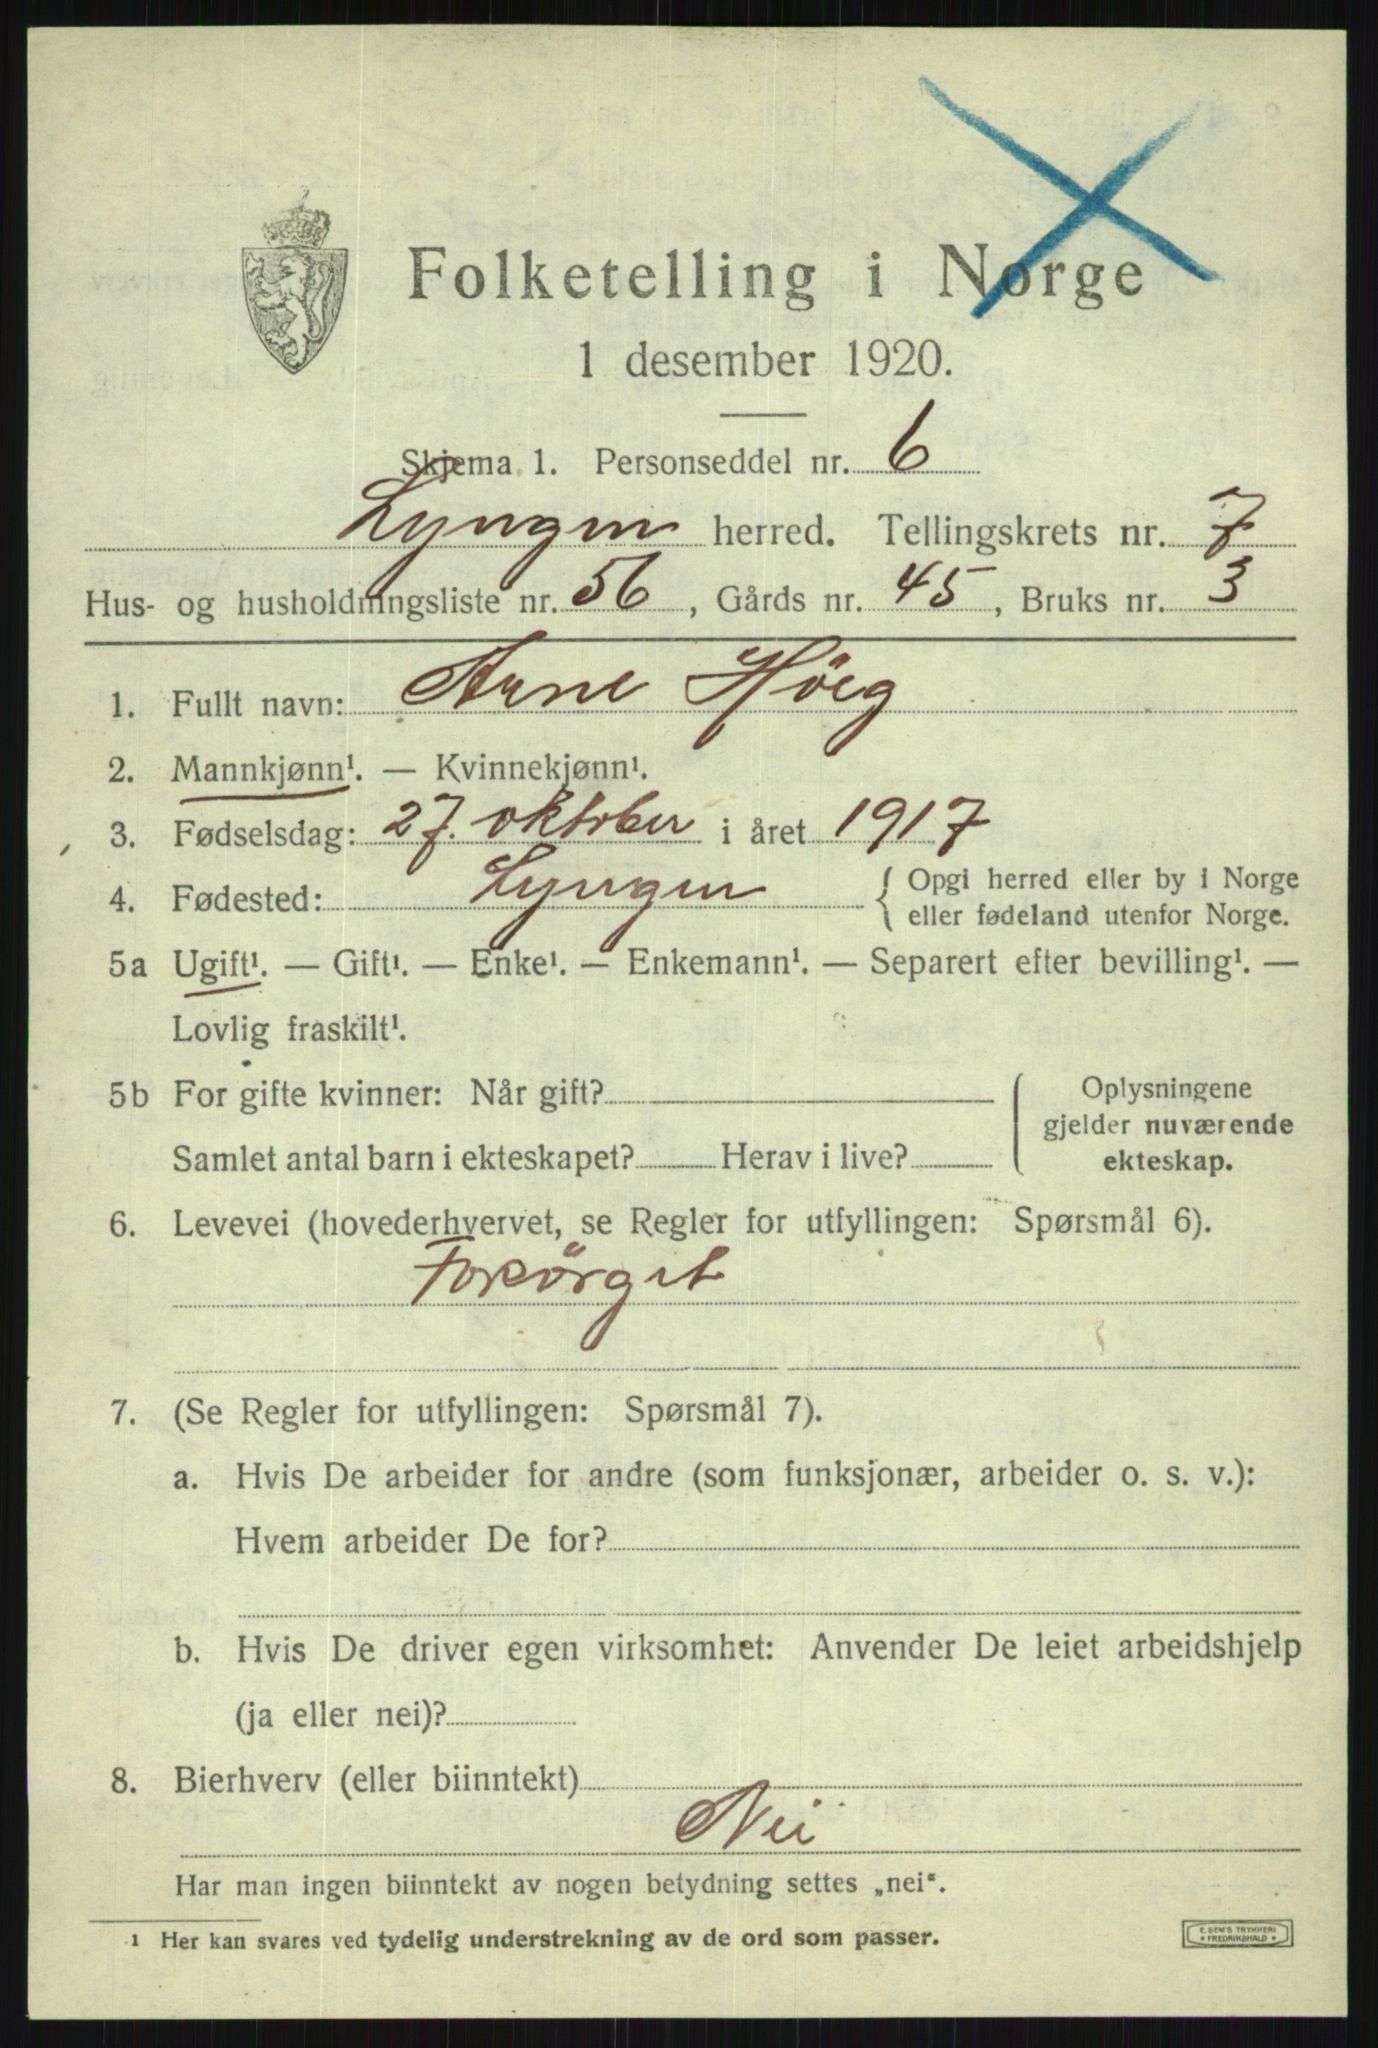 Folketelling i Norge
1 desember 1920.
Skjema 1. Personseddel nr. 6
Lyngen herred. Tellingskrets nr. 7
Hus- og husholdningsliste nr. 56, Gårds nr. 45, Bruks nr. 3
1. Fullt navn: Arne Höeg
2. Mannkjønn¹. — Kvinnekjønn¹.
3. Fødselsdag: 27. oktober i året 1917
4. Fødested: Lyngen { Opgi herred eller by i Norge
eller fødeland utenfor Norge.
5a Ugift¹. — Gift¹. — Enke¹. — Enkemann¹. — Separert efter bevilling¹. —
Lovlig fraskilt¹.
5b For gifte kvinner: Når gift?
Samlet antal barn i ekteskapet? Herav i live?
Oplysningene
gjelder nuværende
ekteskap.
6. Levevei (hovederhvervet, se Regler for utfyllingen: Spørsmål 6).
Forsörget
7. (Se Regler for utfyllingen: Spørsmål 7).
a. Hvis De arbeider for andre (som funksjonær, arbeider o. s. v.):
Hvem arbeider De for?
b. Hvis De driver egen virksomhet: Anvender De leiet arbeidshjelp
(ja eller nei)?
8. Bierhverv (eller biinntekt)
Nei
Har man ingen biinntekt av nogen betydning settes „nei“.
¹ Her kan svares ved tydelig understrekning av de ord som passer.
E. SEM'S TRYKKERI
* FREDRIKSHALD *